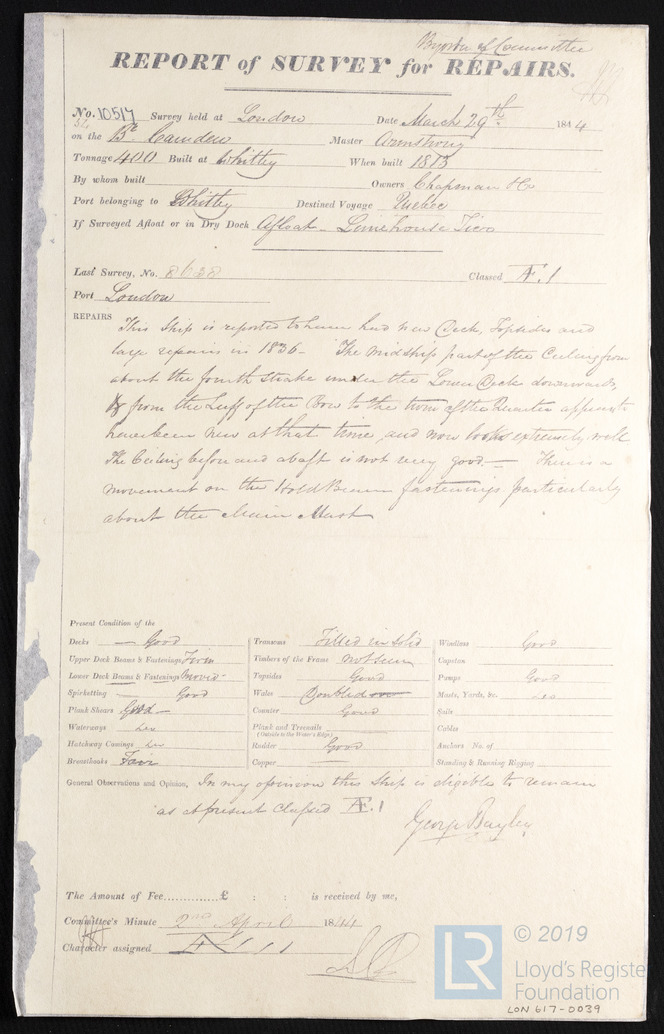 By order of Committee
REPORT of SURVEY for REPAIRS.
No. 10517 Survey held at London Date March 29th 1844
on the Bk Camden Master Armstrong
Tonnage 400 Built at Whitby When built 1813
By whom built Owners Chapman & Co
Port belonging to Whitby Destined Voyage Quebec
If Surveyed Afloat or in Dry Dock Afloat - Limehouse Tier
Last Survey, No. 8628 Classed Æ.1
Port London
REPAIRS This Ship is reported to have had New Deck, Topsides and
large repairs in 1836 - The Midship part of the Ceiling from
about the fourth Strake under the Lower Deck downwards,
& from the Luff of the Bow to the turn of the Quarter appears to
have been New at that time, and now looks extremely well
The Ceiling before and abaft is not very good - There is a
movement on the Hold Beam fastenings particularly
about the Main Mast
Present Condition of the
Decks — Good
Upper Deck Beams & Fastenings Firm
Lower Deck Beams & Fastenings Moved
Spirketting — Good
Plank Shears Good —
Waterways
Hatchway Comings
Breasthooks Fair
Transoms Filled in solid
Timbers of the Frame not seen
Topsides Good
Wales Doubled
Counter Good
Plank and Treenails
(Outside to the Water's Edge)
Rudder Good
Copper —
Windlass Good
Capstan
Pumps Good
Masts, Yards, &c.
Sails
Cables
Anchors No. of
Standing & Running Rigging
General Observations and Opinion, In my opinion this Ship is eligible to remain
as at present Classed Æ.1
George Bayley
The Amount of Fee............£ : : is received by me,
Committee's Minute 2nd April 1844
Character assigned Æ 1
© 2019
LR
Lloyd's Register
Foundation
LON 617-0039